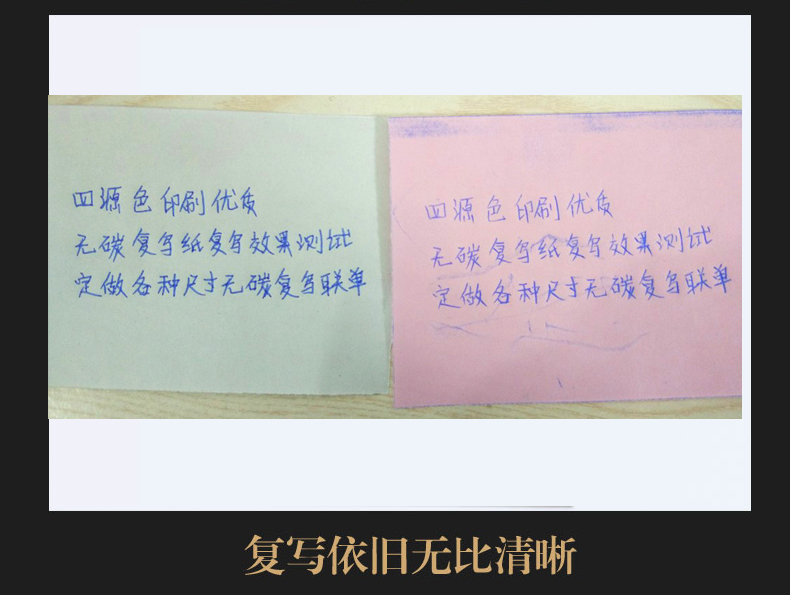 四源色印刷优质
无碳复写纸复写效果测试
定做各种尺寸无碳复写联单
四源色印刷优质
无碳复写纸复写效果测试
定做各种尺寸无碳复写联单
复写依旧无比清晰